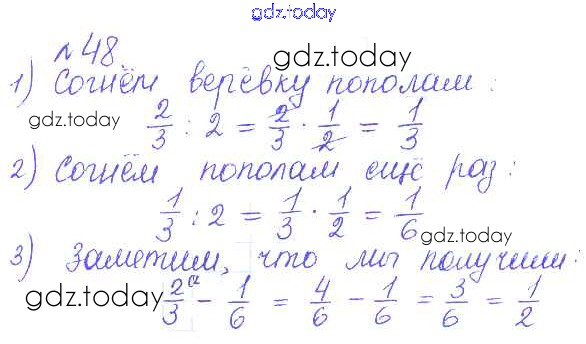 gdz.today
№48
gdz.today
1) Согнём верёвку пополам:
gdz.today
2/3 : 2 = 2/3 · 1/2 = 1/3
2) Согнём пополам ещё раз:
1/3 : 2 = 1/3 · 1/2 = 1/6
gdz.today
3) Заметим, что мы получили:
gdz.today
2/3 - 1/6 = 4/6 - 1/6 = 3/6 = 1/2